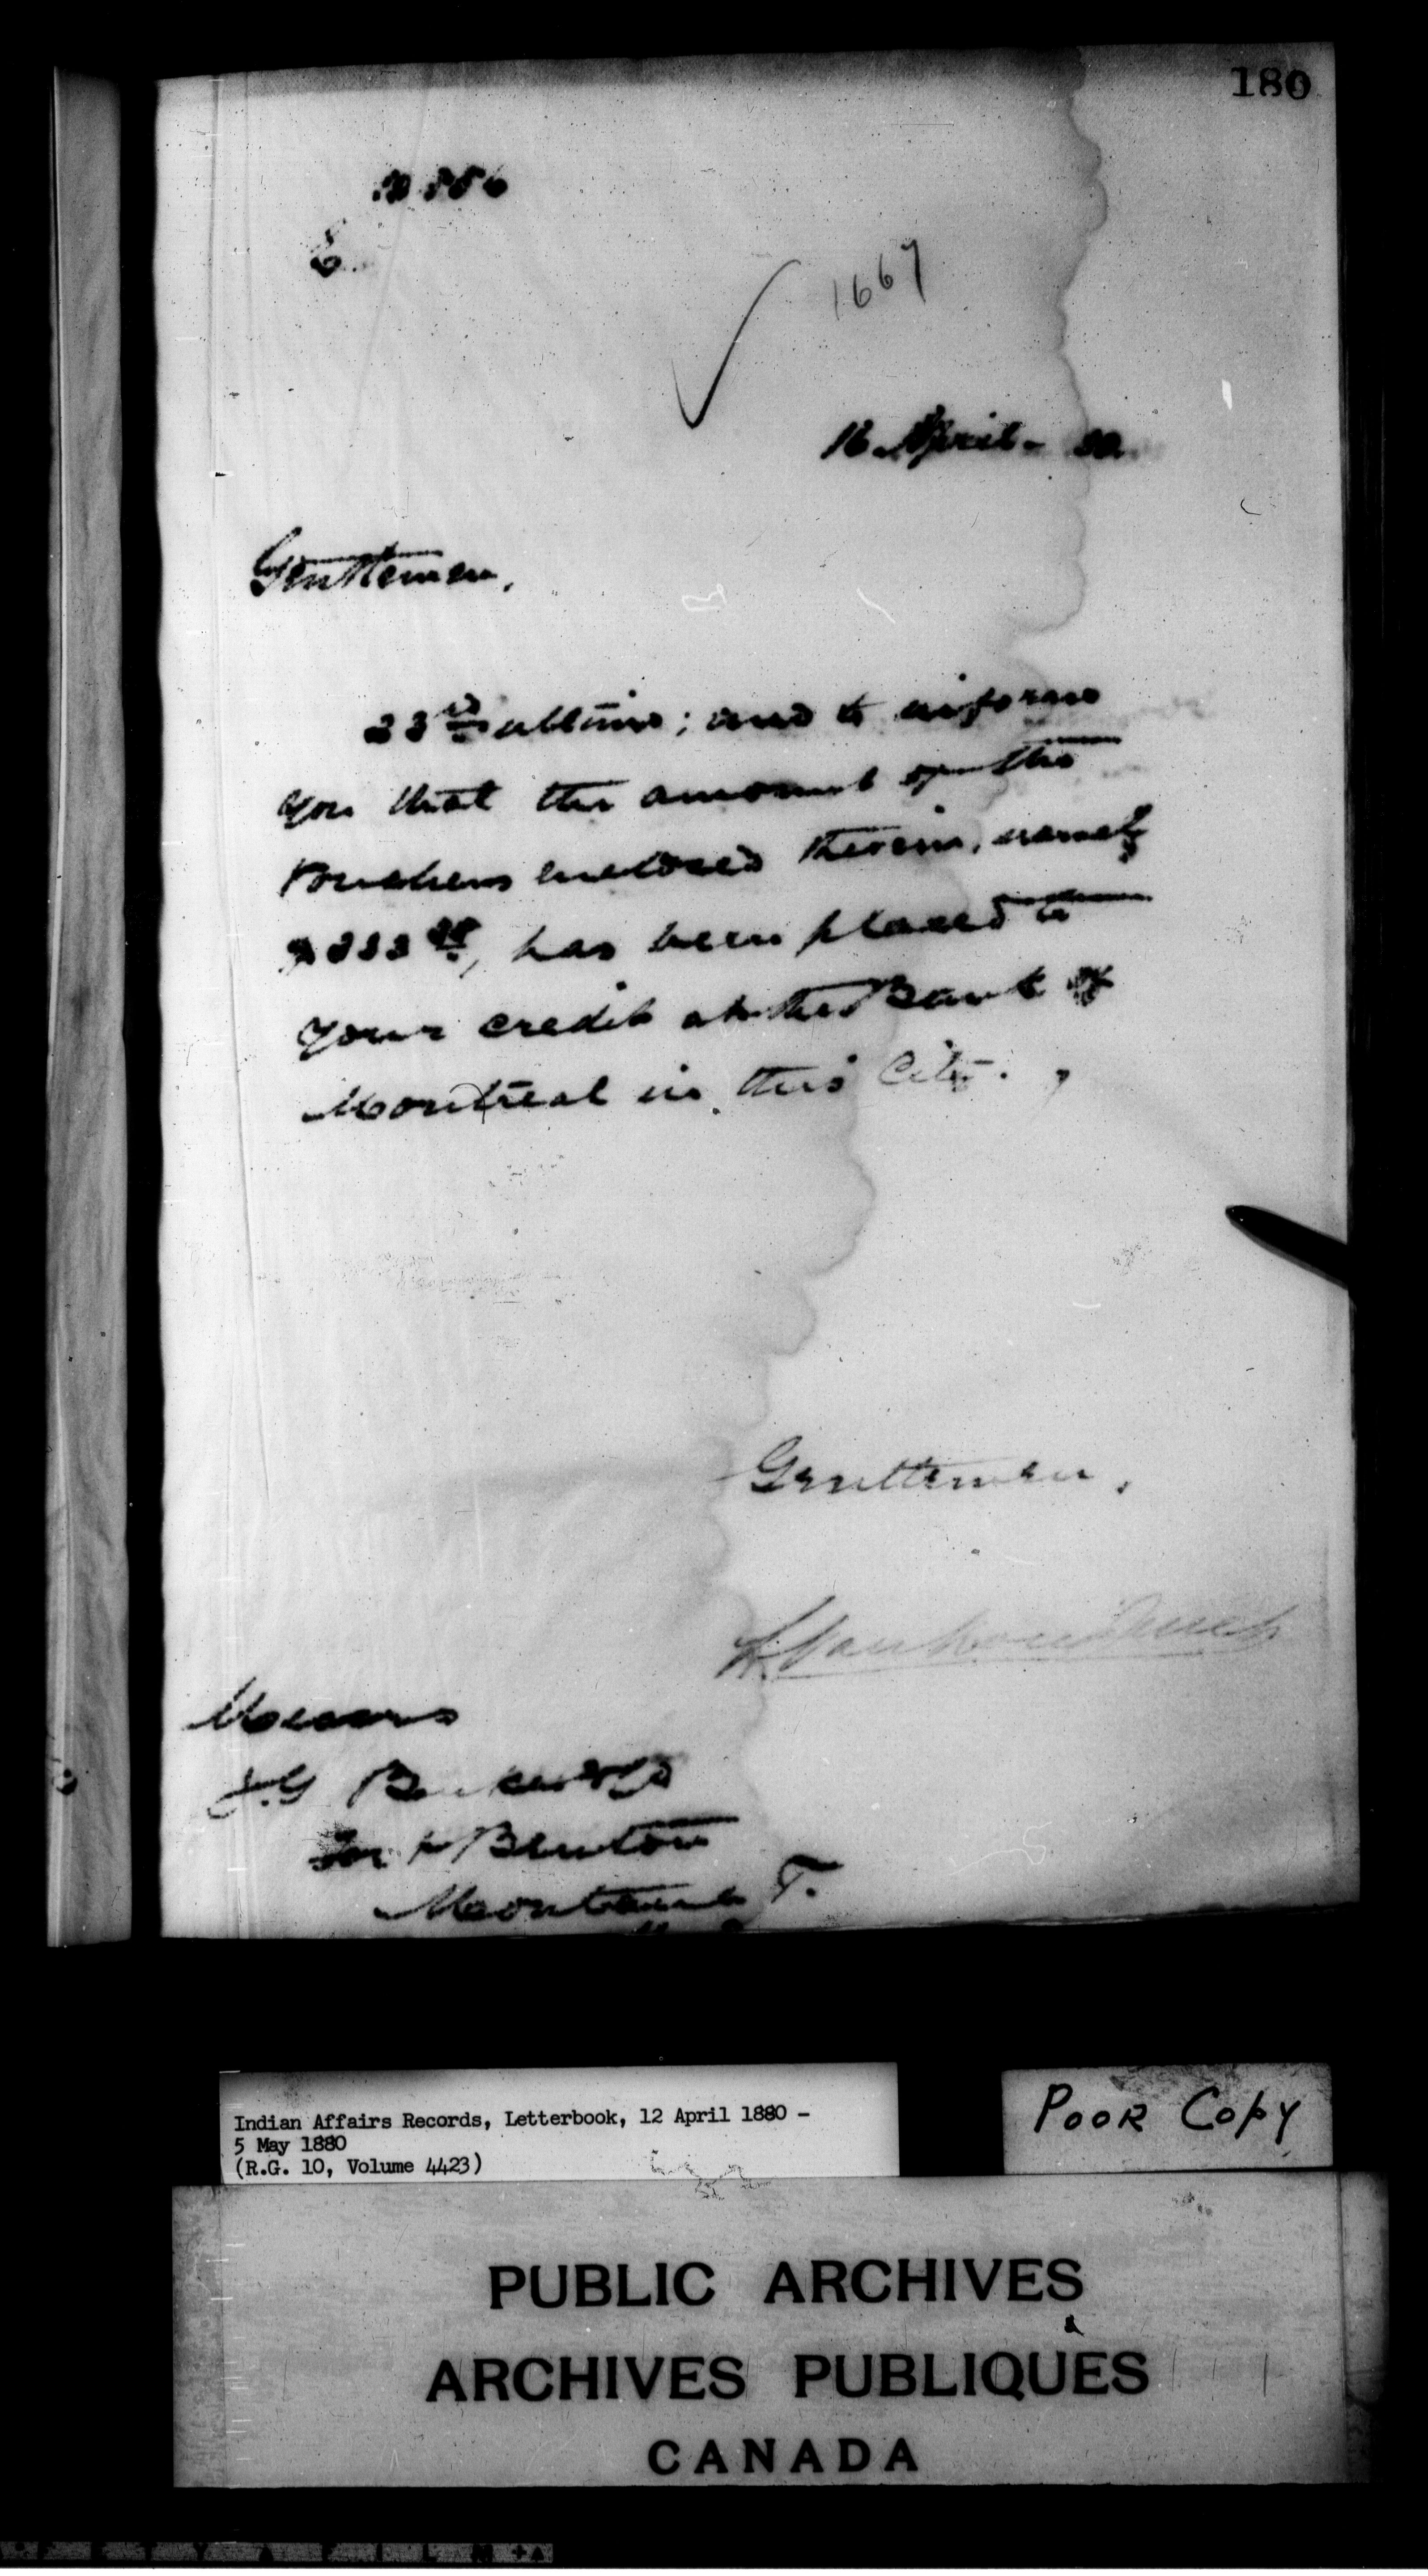 180
1667
16 April - 80
Gentlemen,
23rd ultimo; and to inform
you that the amount of the
vouchers enclosed therein, namely
has been placed to
your credit at the Bank of
Montreal in this City.
Gentlemen,
L Vankoughnet
Messrs
J.G Baker & Co
Fort Benton
Montana T.
Indian Affairs Records, Letterbook, 12 April 1880 -
5 May 1880
(R.G. 10, Volume 4423)
POOR COPY
PUBLIC ARCHIVES
ARCHIVES PUBLIQUES
CANADA